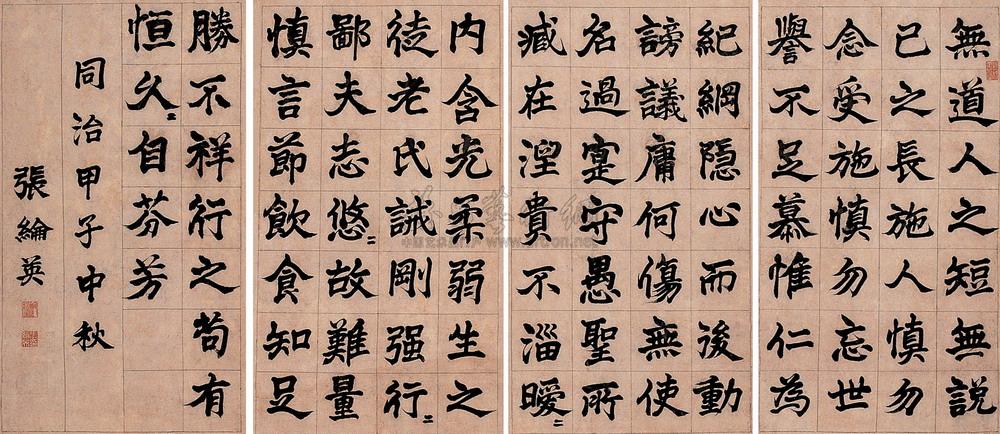 無道人之短無說
已之長施人慎勿
念受施慎勿忘世
譽不足慕惟仁為
紀綱隱心而後動
謗議庸何傷無使
名過寔守愚聖所
臧在涅貴不淄曖〻
內含光柔弱生之
徒老氏誡剛强行〻
鄙夫志悠〻故難量
慎言節飲食知足
勝不祥行之苟有
恒久〻自芬芳
同治甲子中秋
張綸英